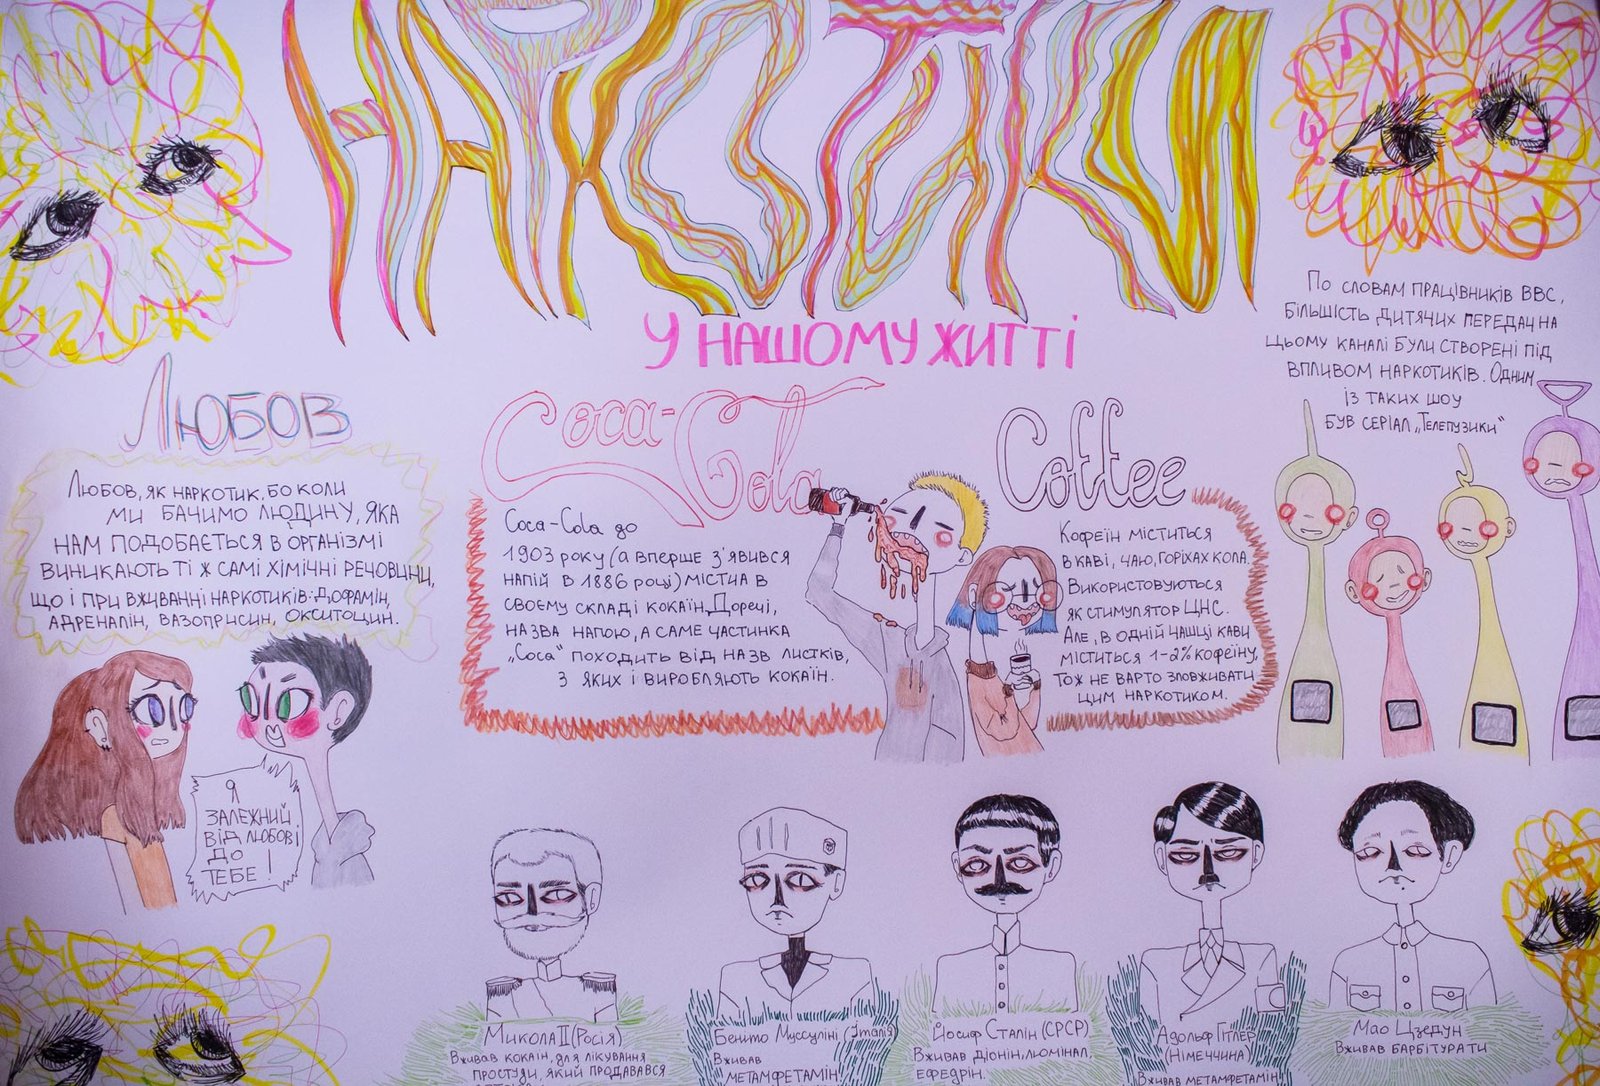 НАРКОТИКИ
У НАШОМУ ЖИТТІ
ЛЮБОВ
ЛЮБОВ, ЯК НАРКОТИК, БО КОЛИ
МИ БАЧИМО ЛЮДИНУ, ЯКА
НАМ ПОДОБАЄТЬСЯ В ОРГАНІЗМІ
ВИНИКАЮТЬ ТІ Ж САМІ ХІМІЧНІ РЕЧОВИНИ,
ЩО І ПРИ ВЖИВАННІ НАРКОТИКІВ: ДОФАМІН,
АДРЕНАЛІН, ВАЗОПРИСИН, ОКСИТОЦИН.
Я
ЗАЛЕЖНИЙ
ВІД ЛЮБОВІ
ДО
ТЕБЕ!
Coca-Cola
Coca-Cola до
1903 РОКУ (А ВПЕРШЕ З'ЯВИВСЯ
НАПІЙ В 1886 РОЦІ) МІСТИЛА В
СВОЄМУ СКЛАДІ КОКАЇН. ДОРЕЧІ,
НАЗВА НАПОЮ, А САМЕ ЧАСТИНКА
„Coca" ПОХОДИТЬ ВІД НАЗВ ЛИСТКІВ,
З ЯКИХ І ВИРОБЛЯЮТЬ КОКАЇН.
Coffee
КОФЕЇН МІСТИТЬСЯ
В КАВІ, ЧАЮ, ГОРІХАХ КОЛА.
ВИКОРИСТОВУЮТЬСЯ
ЯК СТИМУЛЯТОР ЦНС.
АЛЕ, В ОДНІЙ ЧАШЦІ КАВИ
МІСТИТЬСЯ 1-2% КОФЕЇНУ,
ТОЖ НЕ ВАРТО ЗЛОВЖИВАТИ
ЦИМ НАРКОТИКОМ.
ПО СЛОВАМ ПРАЦІВНИКІВ BBC,
БІЛЬШІСТЬ ДИТЯЧИХ ПЕРЕДАЧ НА
ЦЬОМУ КАНАЛІ БУЛИ СТВОРЕНІ ПІД
ВПЛИВОМ НАРКОТИКІВ. ОДНИМ
ІЗ ТАКИХ ШОУ
БУВ СЕРІАЛ „ТЕЛЕПУЗИКИ"
МИКОЛА II (РОСІЯ)
ВЖИВАВ КОКАЇН, ДЛЯ ЛІКУВАННЯ
ПРОСТУДИ, ЯКИЙ ПРОДАВАВСЯ
БЕНІТО МУССОЛІНІ (ІТАЛІЯ)
ВЖИВАВ
МЕТАМФЕТАМІН
ЙОСИФ СТАЛІН (СРСР)
ВЖИВАВ ДІОНІН, ЛЮМІНАЛ,
ЕФЕДРІН.
АДОЛЬФ ГІТЛЕР
(НІМЕЧЧИНА)
ВЖИВАВ МЕТАМФЕТАМІН
МАО ЦЗЕДУН
ВЖИВАВ БАРБІТУРАТИ